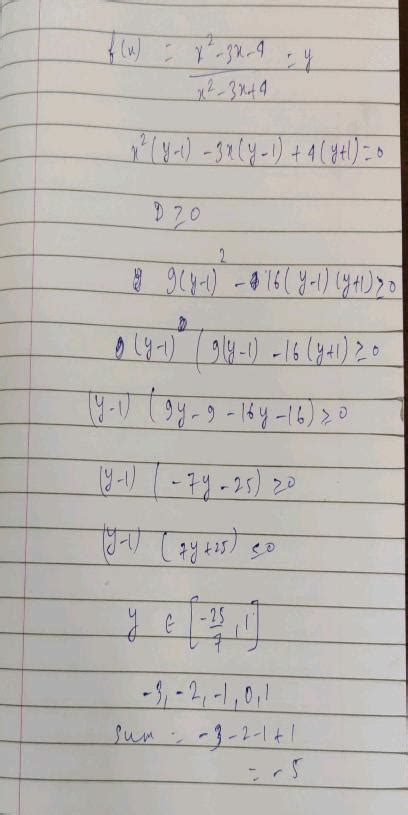 f(x) = x²-3x-4 / x²-3x+4 = y
x²(y-1) -3x(y-1) + 4(y+1)=0
D ≥ 0
9(y-1)² - 16(y-1)(y+1) ≥0
(y-1) (9(y-1) -16(y+1) ≥0
(y-1) (9y-9-16y-16) ≥0
(y-1) (-7y-25) ≥0
(y-1) (7y+25) ≤0
y ∈ [-25/7, 1]
-3, -2, -1, 0, 1
sum = -3-2-1+1
= -5